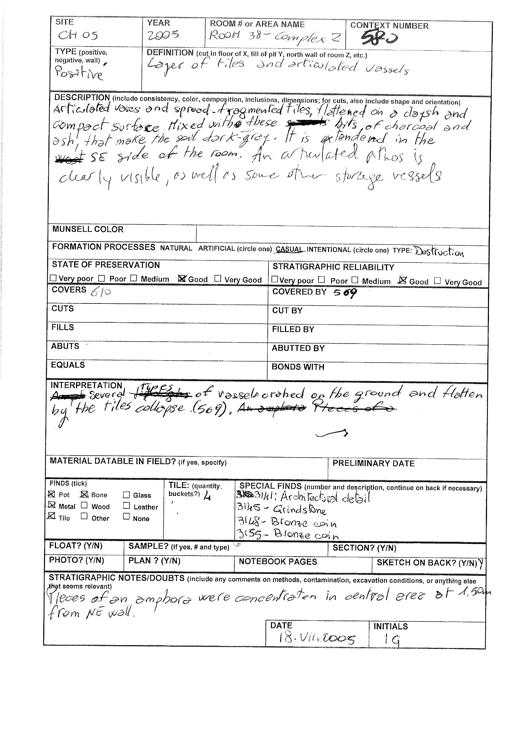 SITE YEAR ROOM # or AREA NAME CONTEXT NUMBER
CH 05 2005 ROOM 38 - Complex 2 580
TYPE (positive, negative, wall) DEFINITION (cut in floor of X, fill of pit Y, north wall of room Z, etc.)
Positive Layer of tiles and articulated vessels
DESCRIPTION (include consistency, color, composition, inclusions, dimensions; for cuts, also include shape and orientation)
Articulated vases and spread-fragmented tiles, flattened on a clayish and
compact surface. Mixed with these bits, of charcoal and
ash, that make the soil dark-grey. It is extendened in the
SE side of the room. An articulated pithos is
clearly visible, as well as some other storage vessels
MUNSELL COLOR
FORMATION PROCESSES NATURAL ARTIFICIAL (circle one) CASUAL INTENTIONAL (circle one) TYPE: Destruction
STATE OF PRESERVATION STRATIGRAPHIC RELIABILITY
Very poor Poor Medium Good Very Good Very poor Poor Medium Good Very Good
COVERS 610 COVERED BY 569
CUTS CUT BY
FILLS FILLED BY
ABUTS ABUTTED BY
EQUALS BONDS WITH
INTERPRETATION
Several types of vassels crahed on the ground and flatten
by the tiles collapse (569). An amphora Pieces of a
MATERIAL DATABLE IN FIELD? (if yes, specify) PRELIMINARY DATE
FINDS (tick) TILE: (quantity, buckets?) 4 SPECIAL FINDS (number and description, continue on back if necessary)
Pot Bone Glass 3141: Architectural detail
Metal Wood Leather 3145 - Grindstone
Tile Other None 3148 - Bronze coin
3155 - Bronze coin
FLOAT? (Y/N) SAMPLE? (if yes, # and type) SECTION? (Y/N)
PHOTO? (Y/N) PLAN ? (Y/N) NOTEBOOK PAGES SKETCH ON BACK? (Y/N) Y
STRATIGRAPHIC NOTES/DOUBTS (include any comments on methods, contamination, excavation conditions, or anything else
that seems relevant)
Pieces of an amphora were concentraten in central area at 1,50m
from NE wall.
DATE INITIALS
18.VII.2005 IG